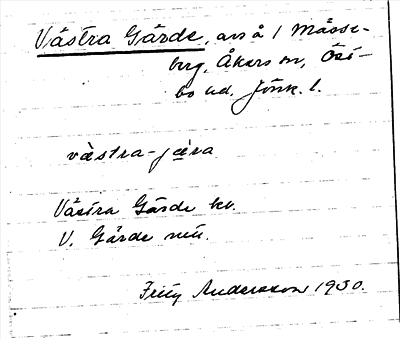 Västra Gärde, avs å 1 Måsse-
berg, Åkers sn, Öst-
bo hd, Jönk. l.
västra-jæra
Västra Gärde kv.
V. Gärde
Fritz Andersson 1930.